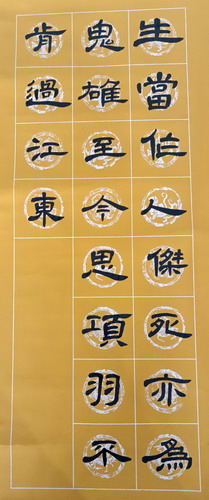 生當作人傑死亦為
鬼雄至今思項羽不
肯過江東